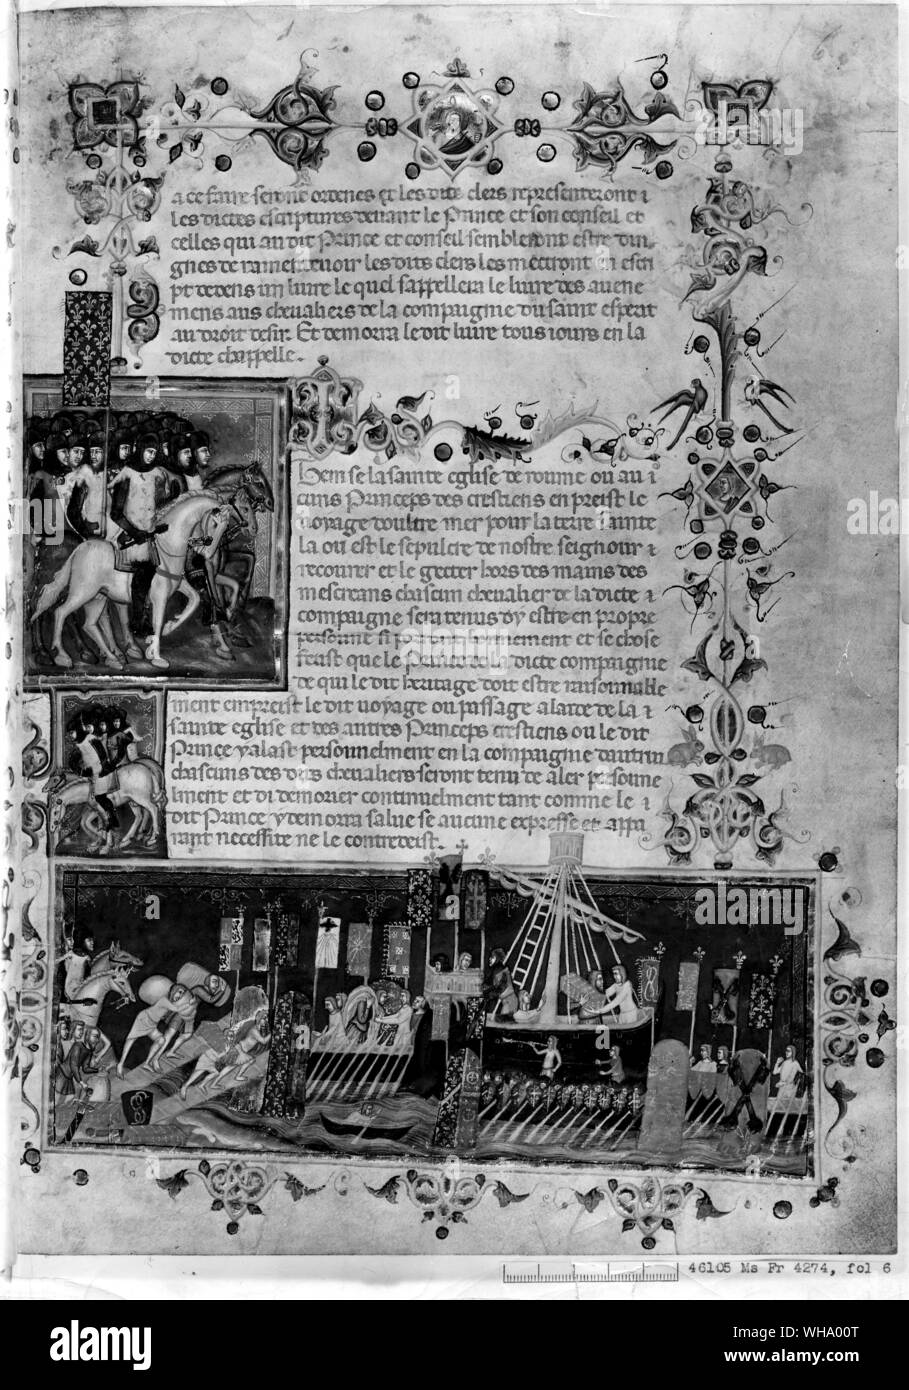 a ce faire seront ordenes et les dits clers representeront i
les dictes escriptures devant le Prince et son conseil et
celles qui au dit Prince et conseil sembleront estre din
gnes de ramentevoir les dits clers les mettront en escri
pt dedens un livre le quel sappellera le livre des avene
mens aus chevaliers de la compaignie du saint esperit
au droit desir. Et demorra le dit livre tous iours en la
dicte chappelle.
Item se la sainte eglise de roume ou au i
cuns Princeps des crestiens enpreist le
voyage doultre mer pour la terre sainte
la ou est le sepulcre de nostre seignour i
recouvrer et le getter hors des mains des
mescreans chascun chevalier de la dicte i
compaignie sera tenus dy estre en propre
persoune si
et se chose
feust que le Prince de la dicte compaignie
de qui le dit heritage doit estre raisonnable
ment empreist le dit voyage ou passage alaide de la i
sainte eglise et des autres Princeps crestiens ou le dit
Prince y alast personnelment en la compaignie dautrui
chascuns des dits chevaliers seront tenu de aler persoune
lment et di demorer continuelment tant comme le i
dit Prince y demorra salve se aucune expresse et appa
rant necessite ne le contredeist.
46105 Ms Fr 4274, fol 6
alamy
Image ID: WHA00T
www.alamy.com